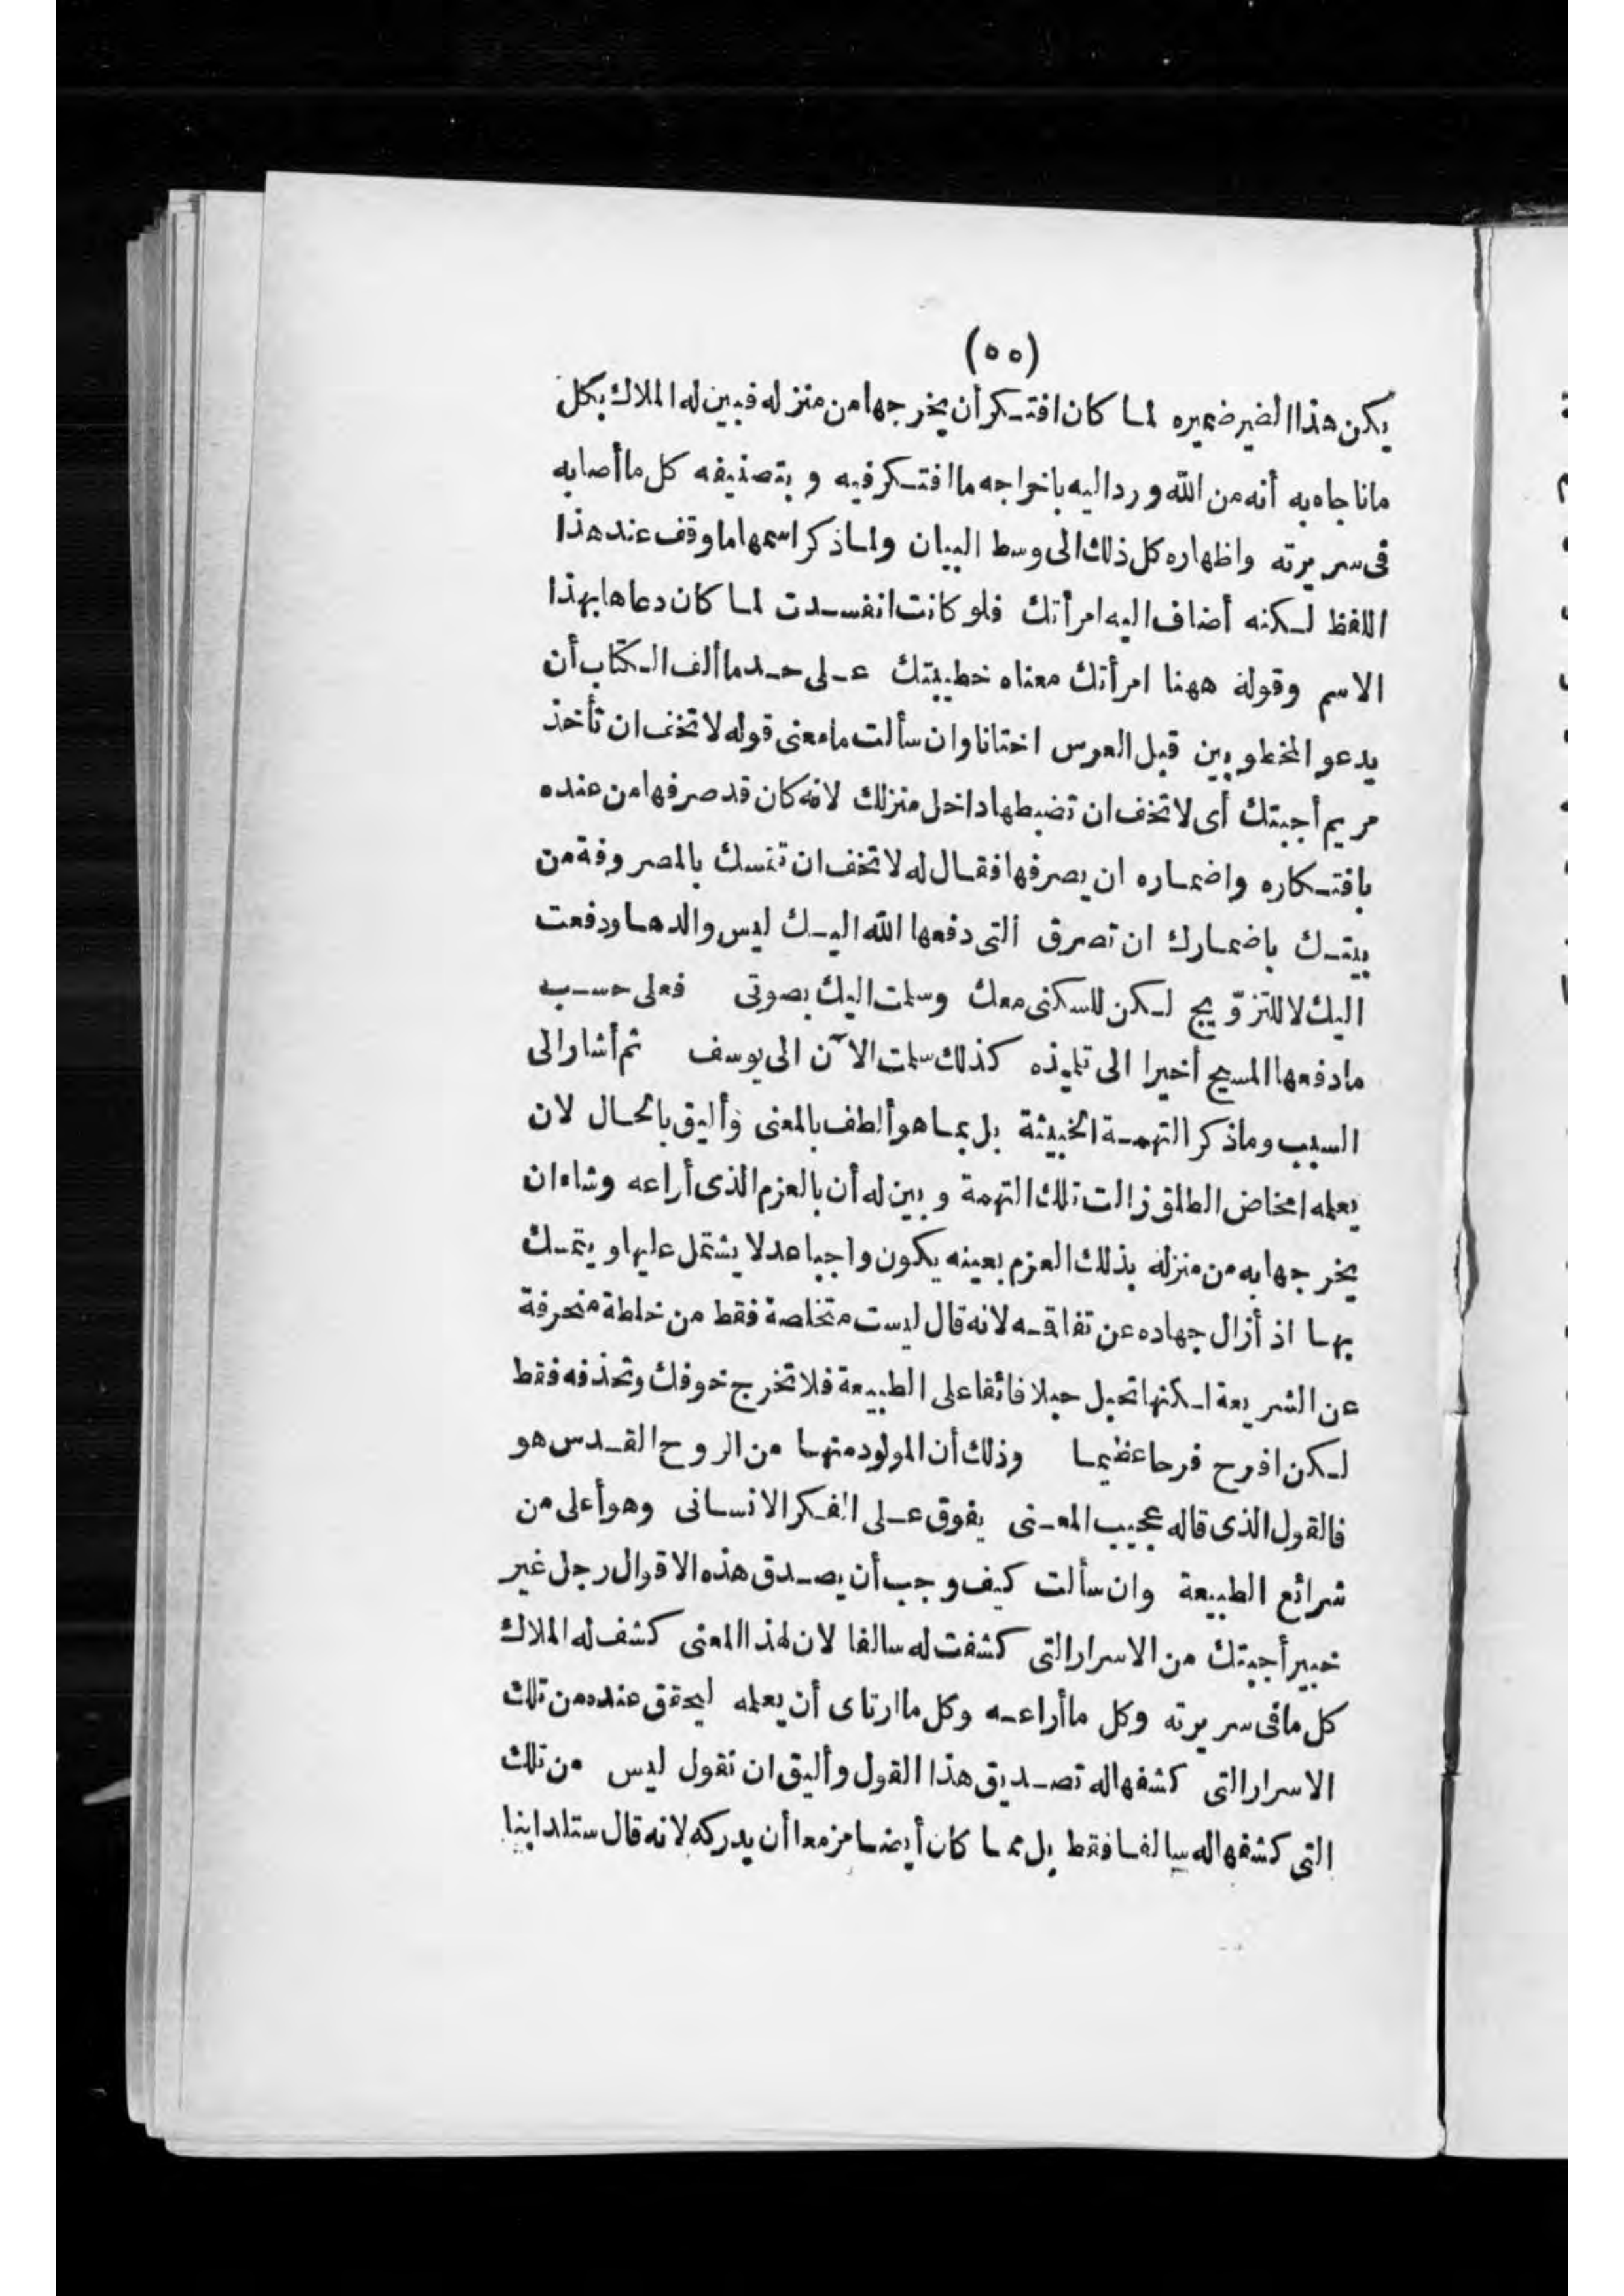 (٥٥)
يكن هذا الضير ضميره لما كان افتكر أن يخرجها من منزله فبين له الملاك بكل
ما ناجاه به أنه من الله ورد اليه باخراجه ما افتكر فيه و بتصنيفه كل ما أصابه
فى سريرته واظهاره كل ذلك الى وسط البيان ولما ذكر اسمها ما وقف عند هذا
اللفظ لكنه أضاف اليه امرأتك فلو كانت انفسدت لما كان دعاها بهذا
الاسم وقوله ههنا امرأتك معناه خطيبتك على حد ما ألف الكتاب أن
يدعو المخطوبين قبل العرس اختانا وان سألت ما معنى قوله لا تخف ان تأخذ
مريم أجبتك أى لا تخف ان تضبطها داخل منزلك لانه كان قد صرفها من عنده
بافتكاره واضماره ان يصرفها فقال له لا تخف ان تمسك بالمصروفة من
بيتك باضمارك ان تصرف التى دفعها الله اليك ليس والدها ودفعت
اليك لا للتزوّيج لكن للسكنى معك وسلمت اليك بصوتى فعلى حسب
ما دفعها المسيح أخيرا الى تلميذه كذلك سلمت الآن الى يوسف ثم أشار الى
السبب وما ذكر التهمة الخبيثة بل بما هو ألطف بالمعنى وأليق بالحال لان
بعلمه امخاض الطلق زالت تلك التهمة وبين له أن بالعزم الذى أراعه وشاء ان
يخرجها به من منزله بذلك العزم بعينه يكون واجبا عدلا يشتمل عليها ويتمسك
بها اذ أزال جهاده عن تفاقه لانه قال ليست متخلصة فقط من خلطة منحرفة
عن الشريعة لكنها تحبل حبلا فائقا على الطبيعة فلا تخرج خوفك وتحذفه فقط
لكن افرح فرحا عظيما وذلك أن المولود منها من الروح القدس هو
فالقول الذى قاله عجيب المعنى يفوق على الفكر الانسانى وهو أعلى من
شرائع الطبيعة وان سألت كيف وجب أن يصدق هذه الاقوال رجل غير
خبير أجبتك من الاسرار التى كشفت له سالفا لان لهذا المعنى كشف له الملاك
كل ما فى سريرته وكل ما أراعه وكل ما ارتاى أن يعمله ليحقق عنده من تلك
الاسرار التى كشفها له تصديق هذا القول وأليق ان نقول ليس من تلك
التى كشفها له سالفا فقط بل مما كان أيضا مزمعا أن يدركه لانه قال ستلد ابنا